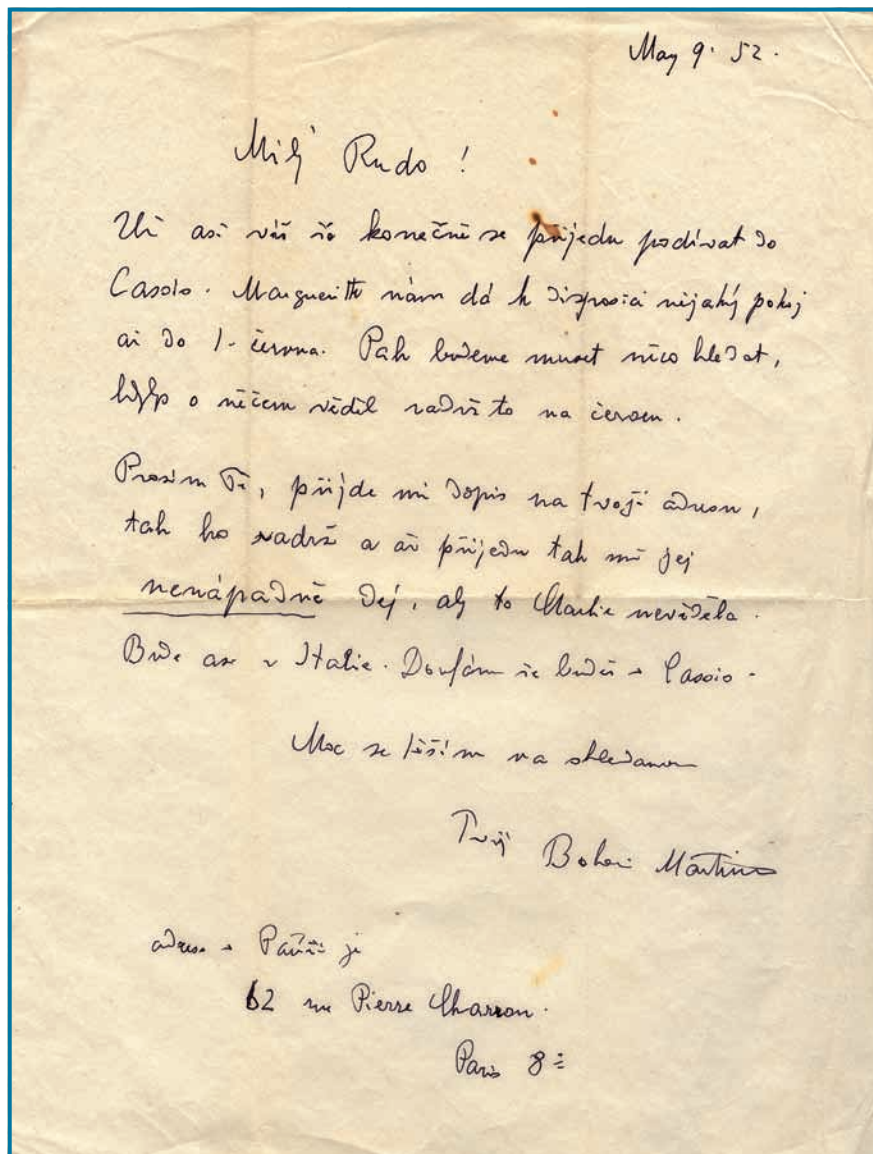 May 9. 52.
Milý Rudo!
Už asi víš že konečně se přijedu podívat do
Cassis. Marguerite nám dá k disposici nějaký pokoj
až do 1. června. Pak budeme muset něco hledat,
kdybys o něčem věděl zadrž to na červen.
Prosím Tě, přijde mi dopis na tvoji adresu,
tak ho zadrž a až přijedu tak mi jej
nenápadně dej, aby to Charlie nevěděla.
Bude asi z Italie. Doufám že budeš v Cassis.
Moc se těším na shledanou
Tvůj Bohouš Martinů
adresa v Paříži je
62 rue Pierre Charron.
Paris 8e